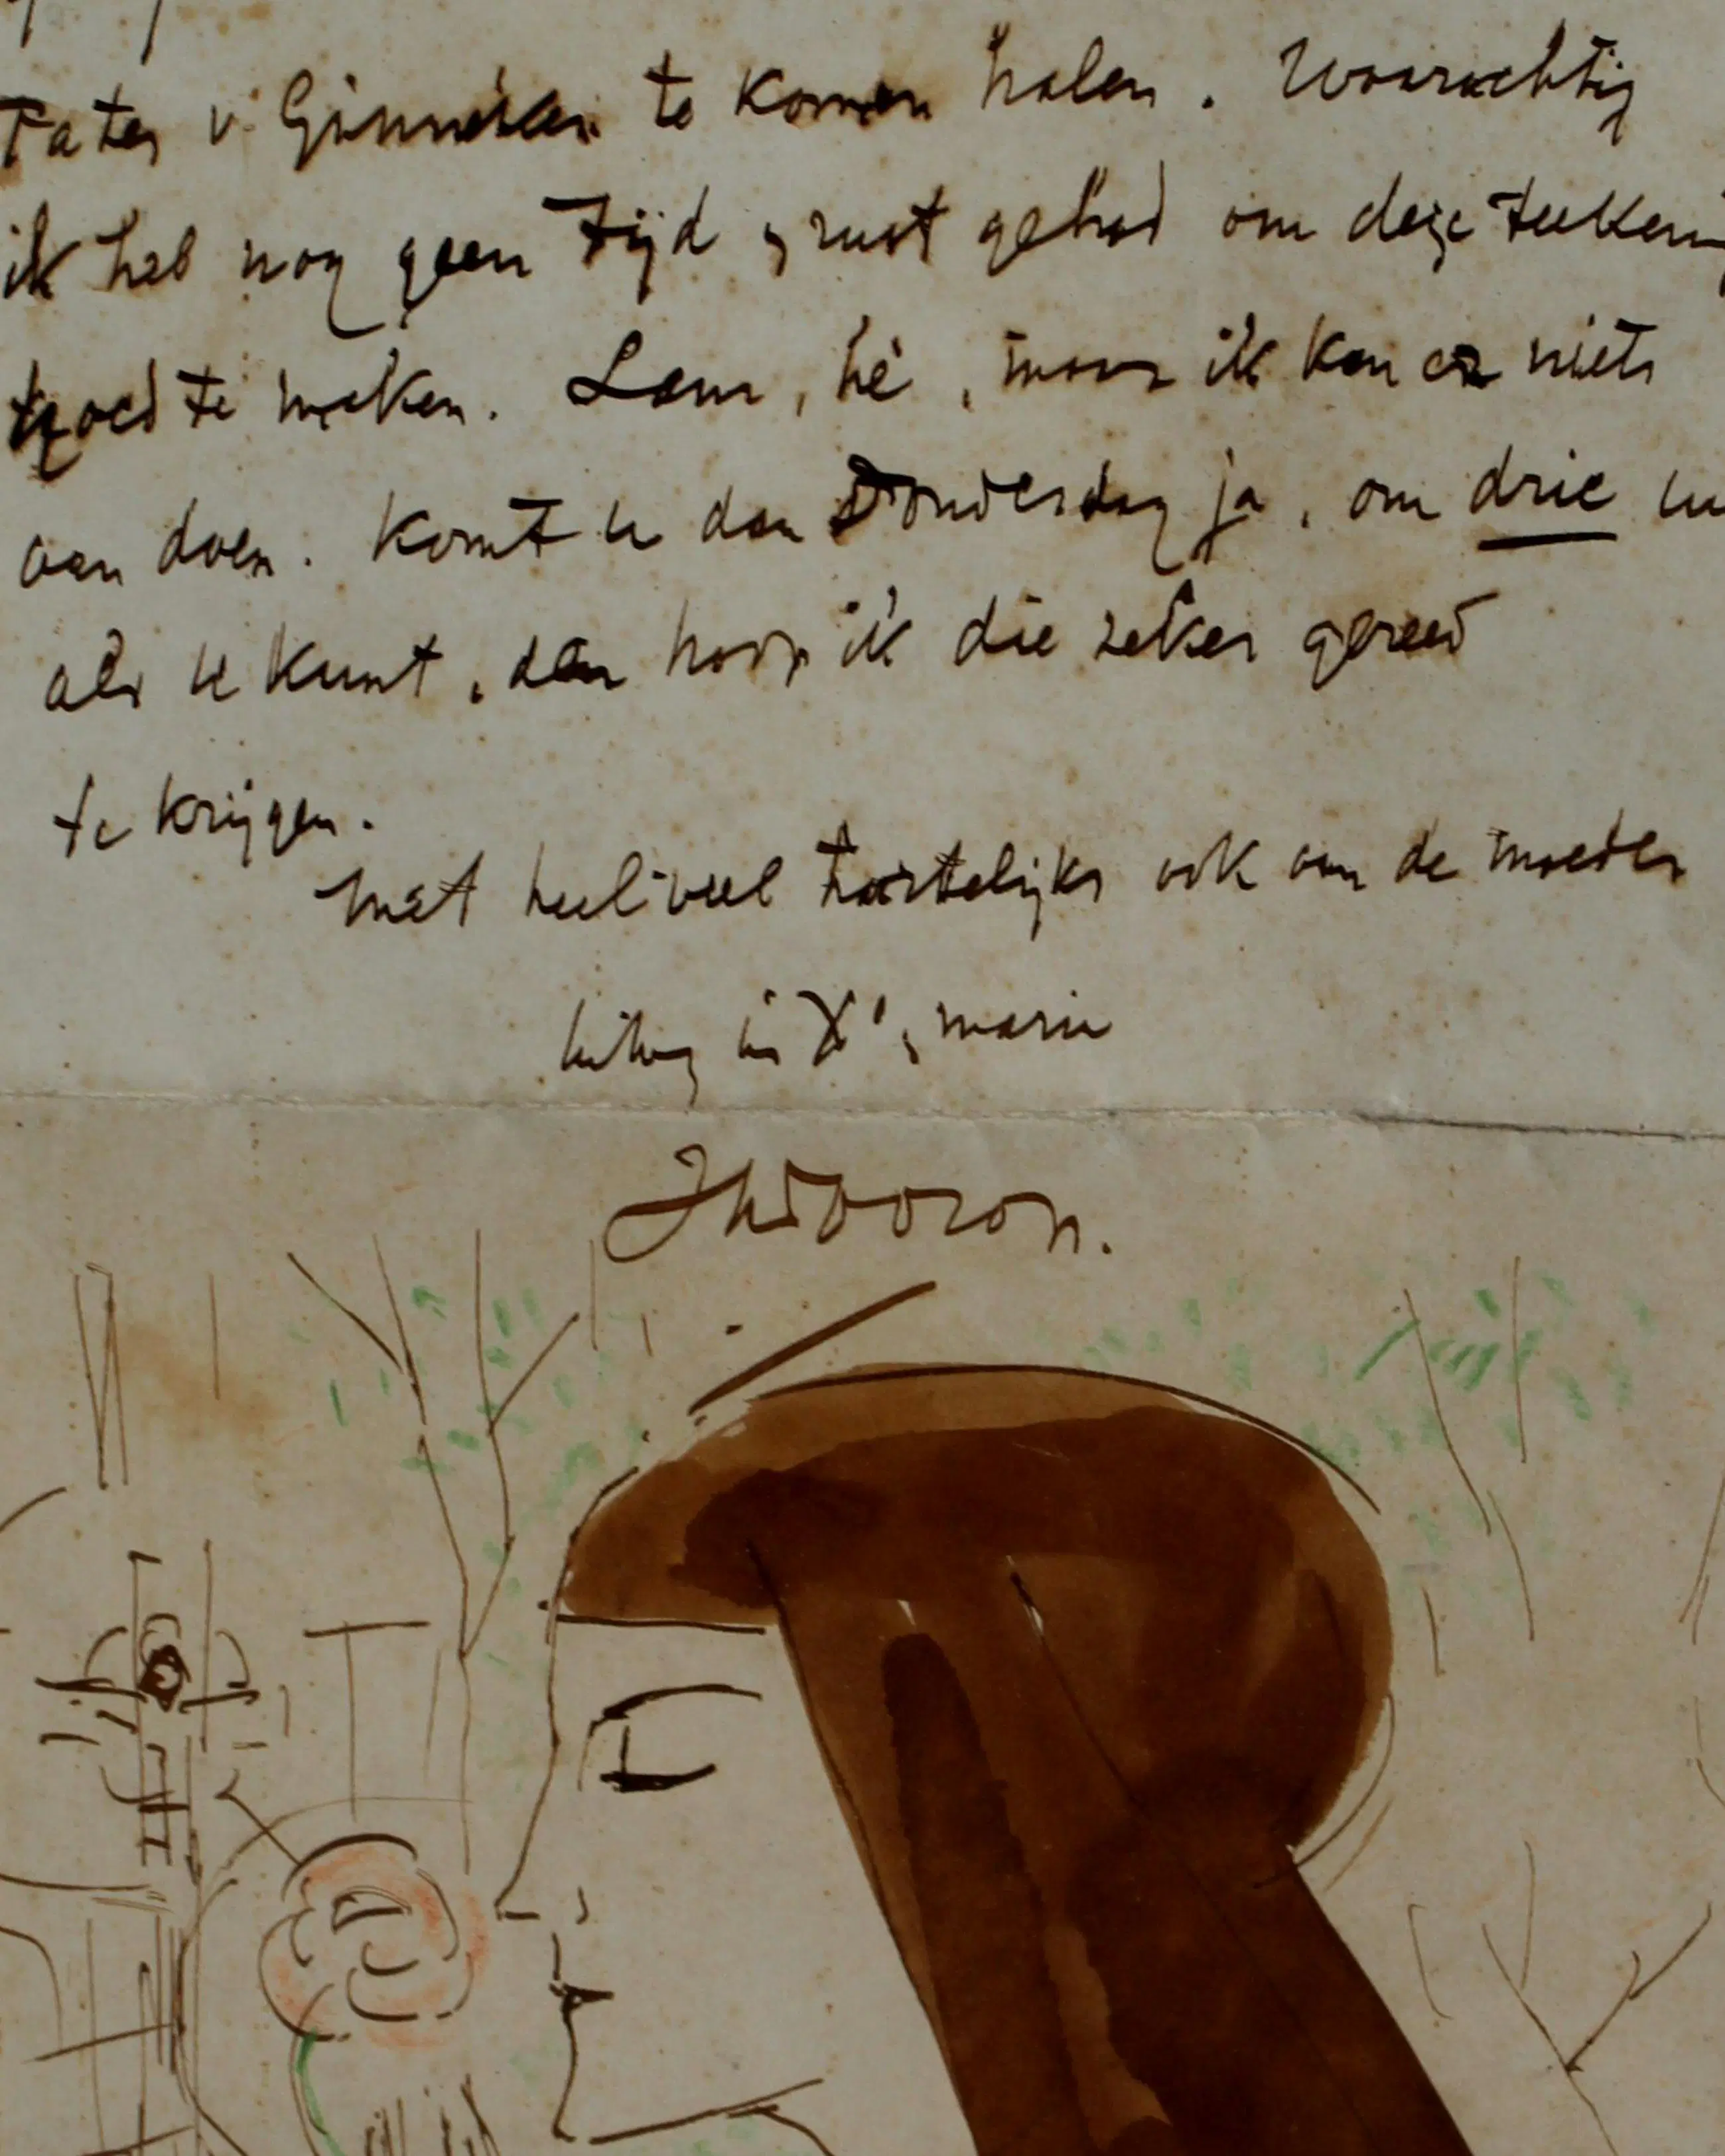 Pater v. Ginneken te komen halen. Waarachtig
ik heb nog geen tijd & rust gehad om deze teekening
goed te maken. Lam, hè, maar ik kan er niets
aan doen. Komt u dan Donderdag ja, om drie uur
als u kunt, dan hoop ik die zeker gereed
te krijgen.
Met heel veel hartelijks ook van de moeder
in X', marie
JhToorop.